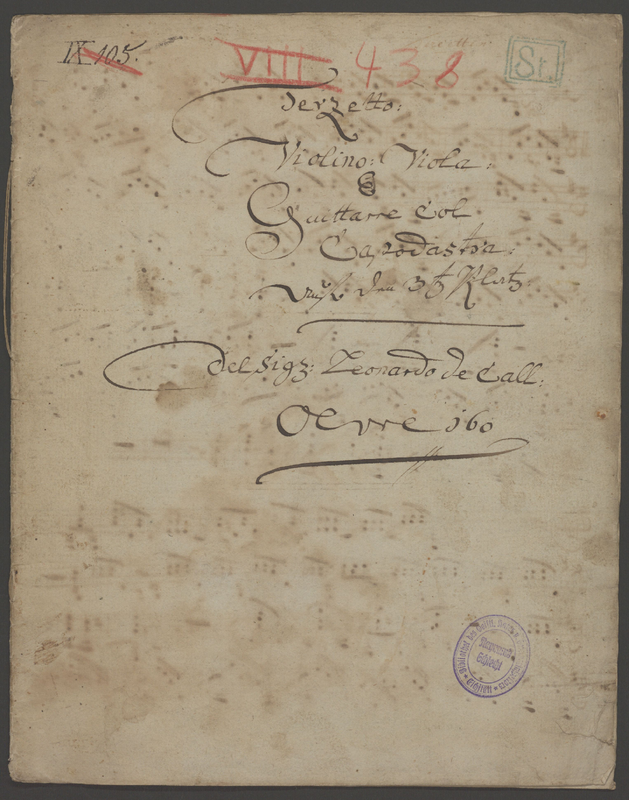 IX 105.
VIII 438
St.
Terzetto:
Violino: Viola:
e
Guittarre Col
Capodastra:
auf den 3t
Del Sigr: Leonardo de Call:
Oevre 160
Eichstätt